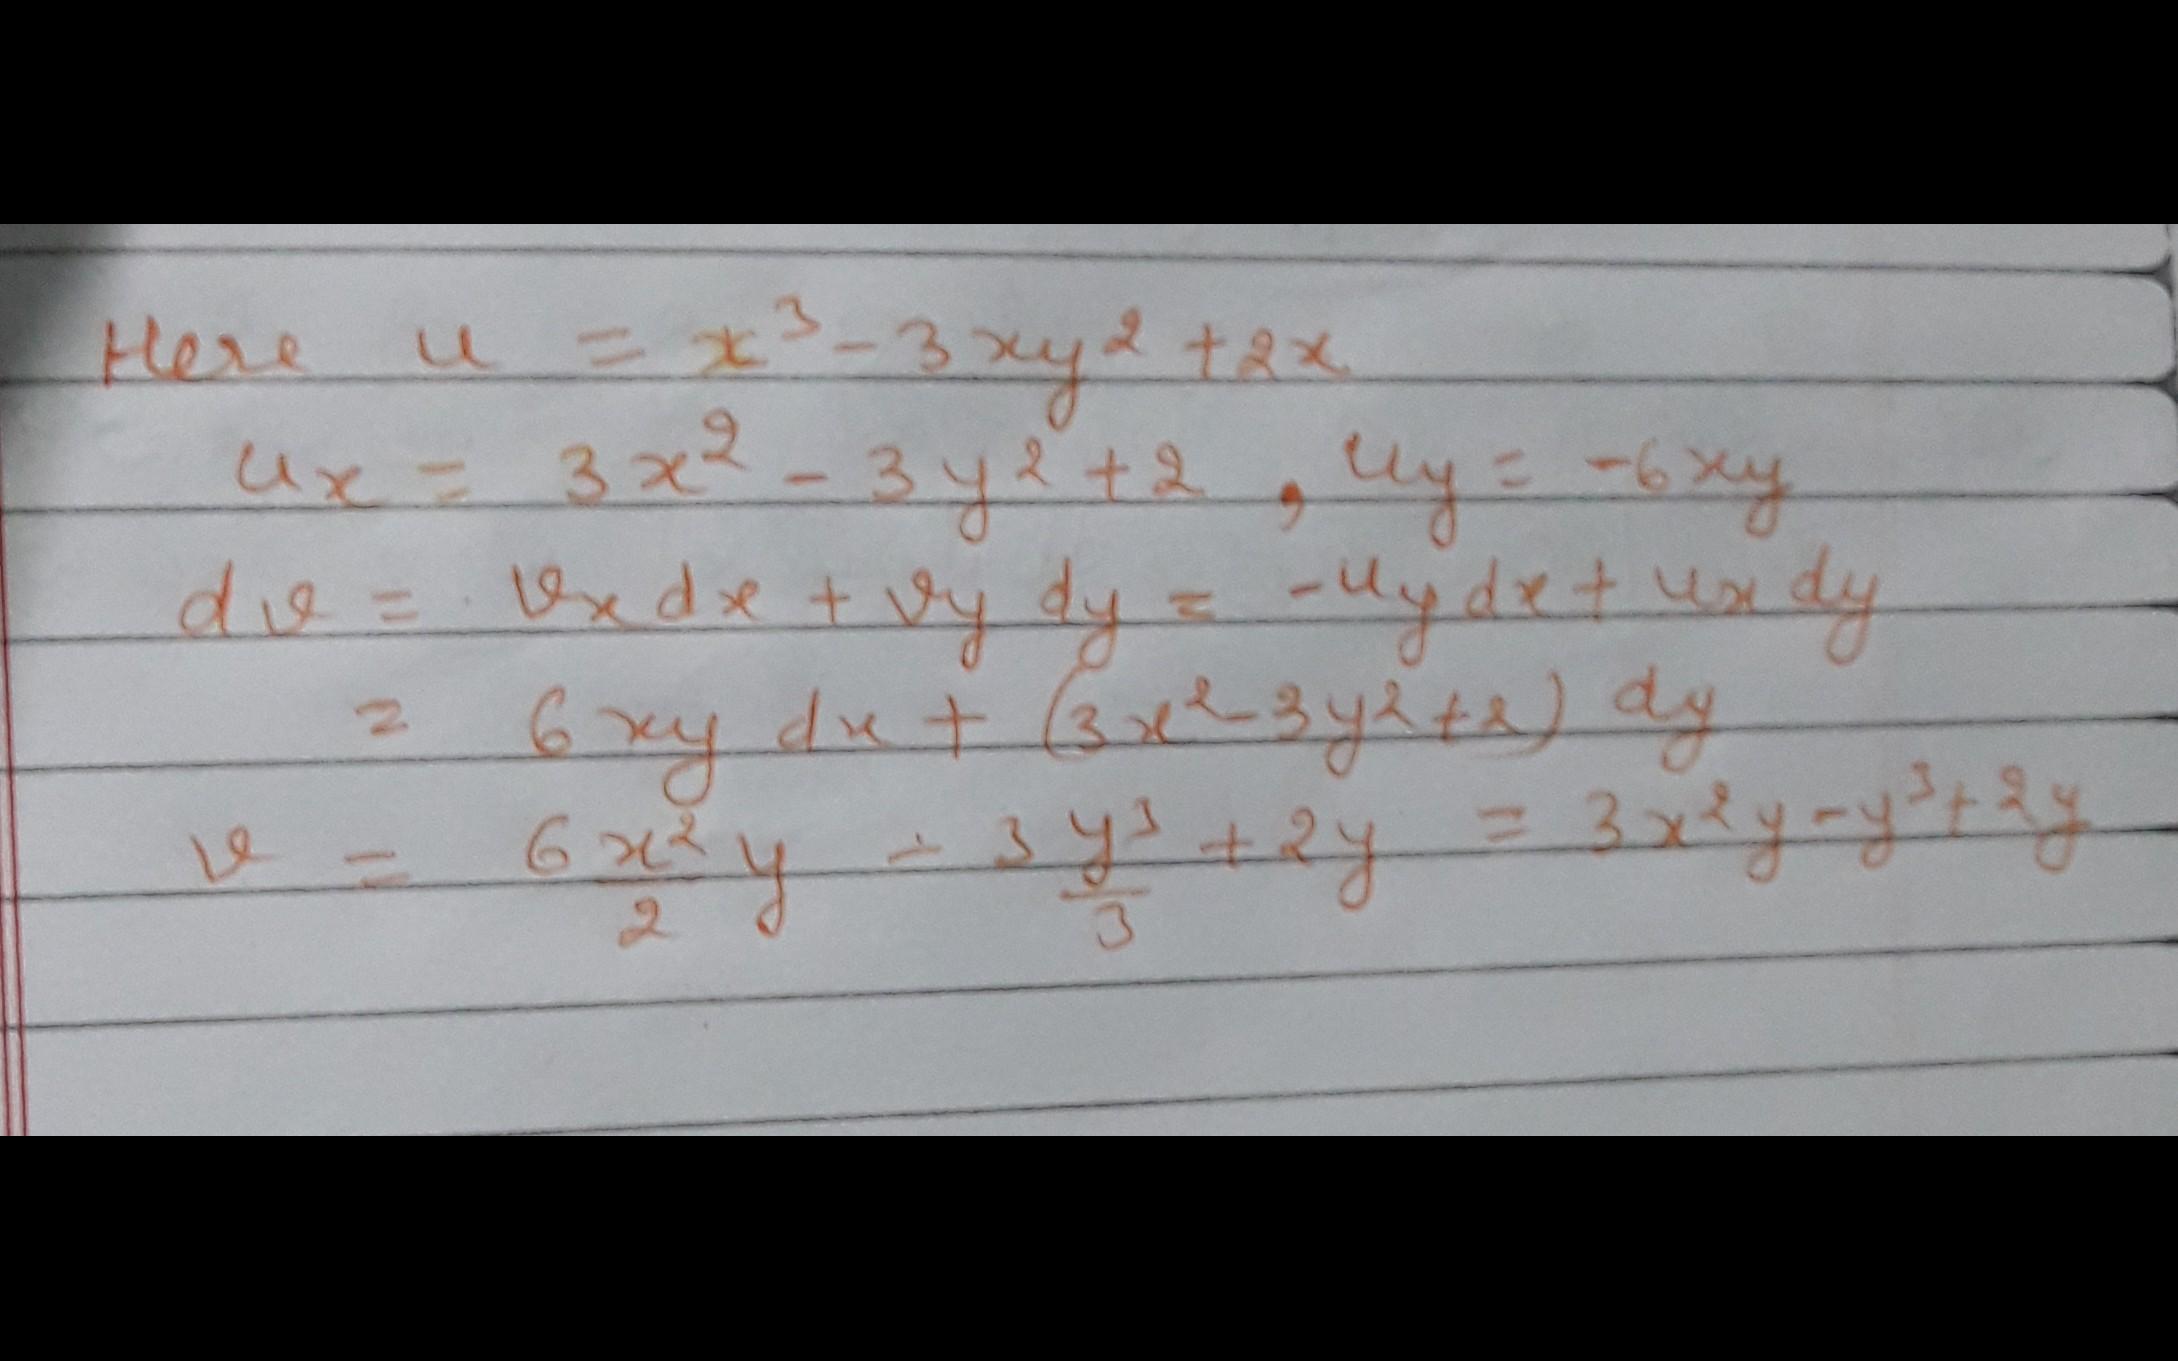 Here u = x³ - 3xy² + 2x
ux = 3x² - 3y² + 2 , uy = -6xy
dv = vx dx + vy dy = -uy dx + ux dy
= 6xy dx + (3x² - 3y² + 2) dy
v = 6 x²/2 y - 3 y³/3 + 2y = 3x²y - y³ + 2y